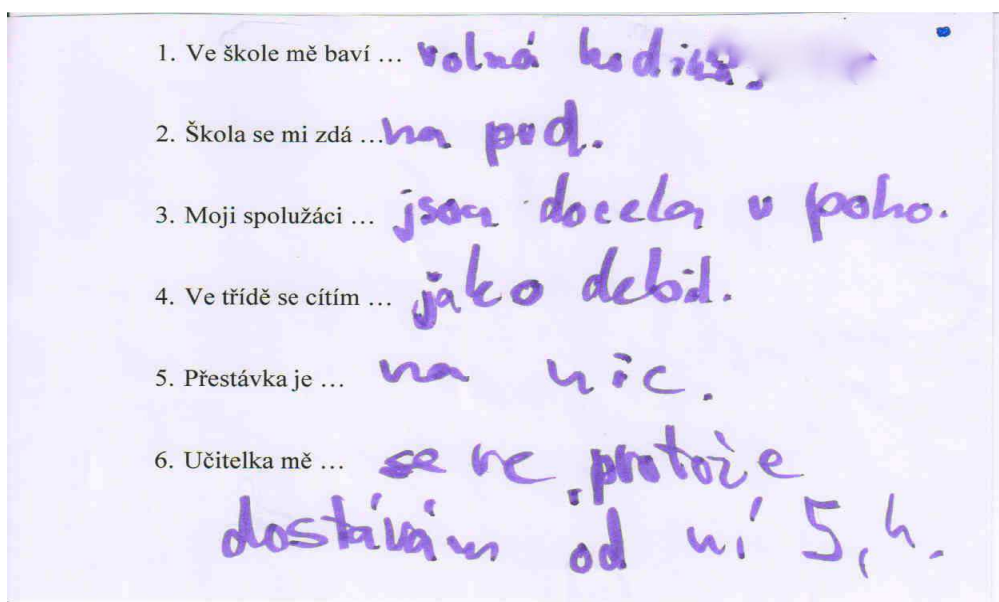 1. Ve škole mě baví ... volná hodina.
2. Škola se mi zdá ... na prd.
3. Moji spolužáci ... jsou docela v poho.
4. Ve třídě se cítím ... jako debil.
5. Přestávka je ... na nic.
6. Učitelka mě ... se re, protože
dostávám od ní 5, 4.